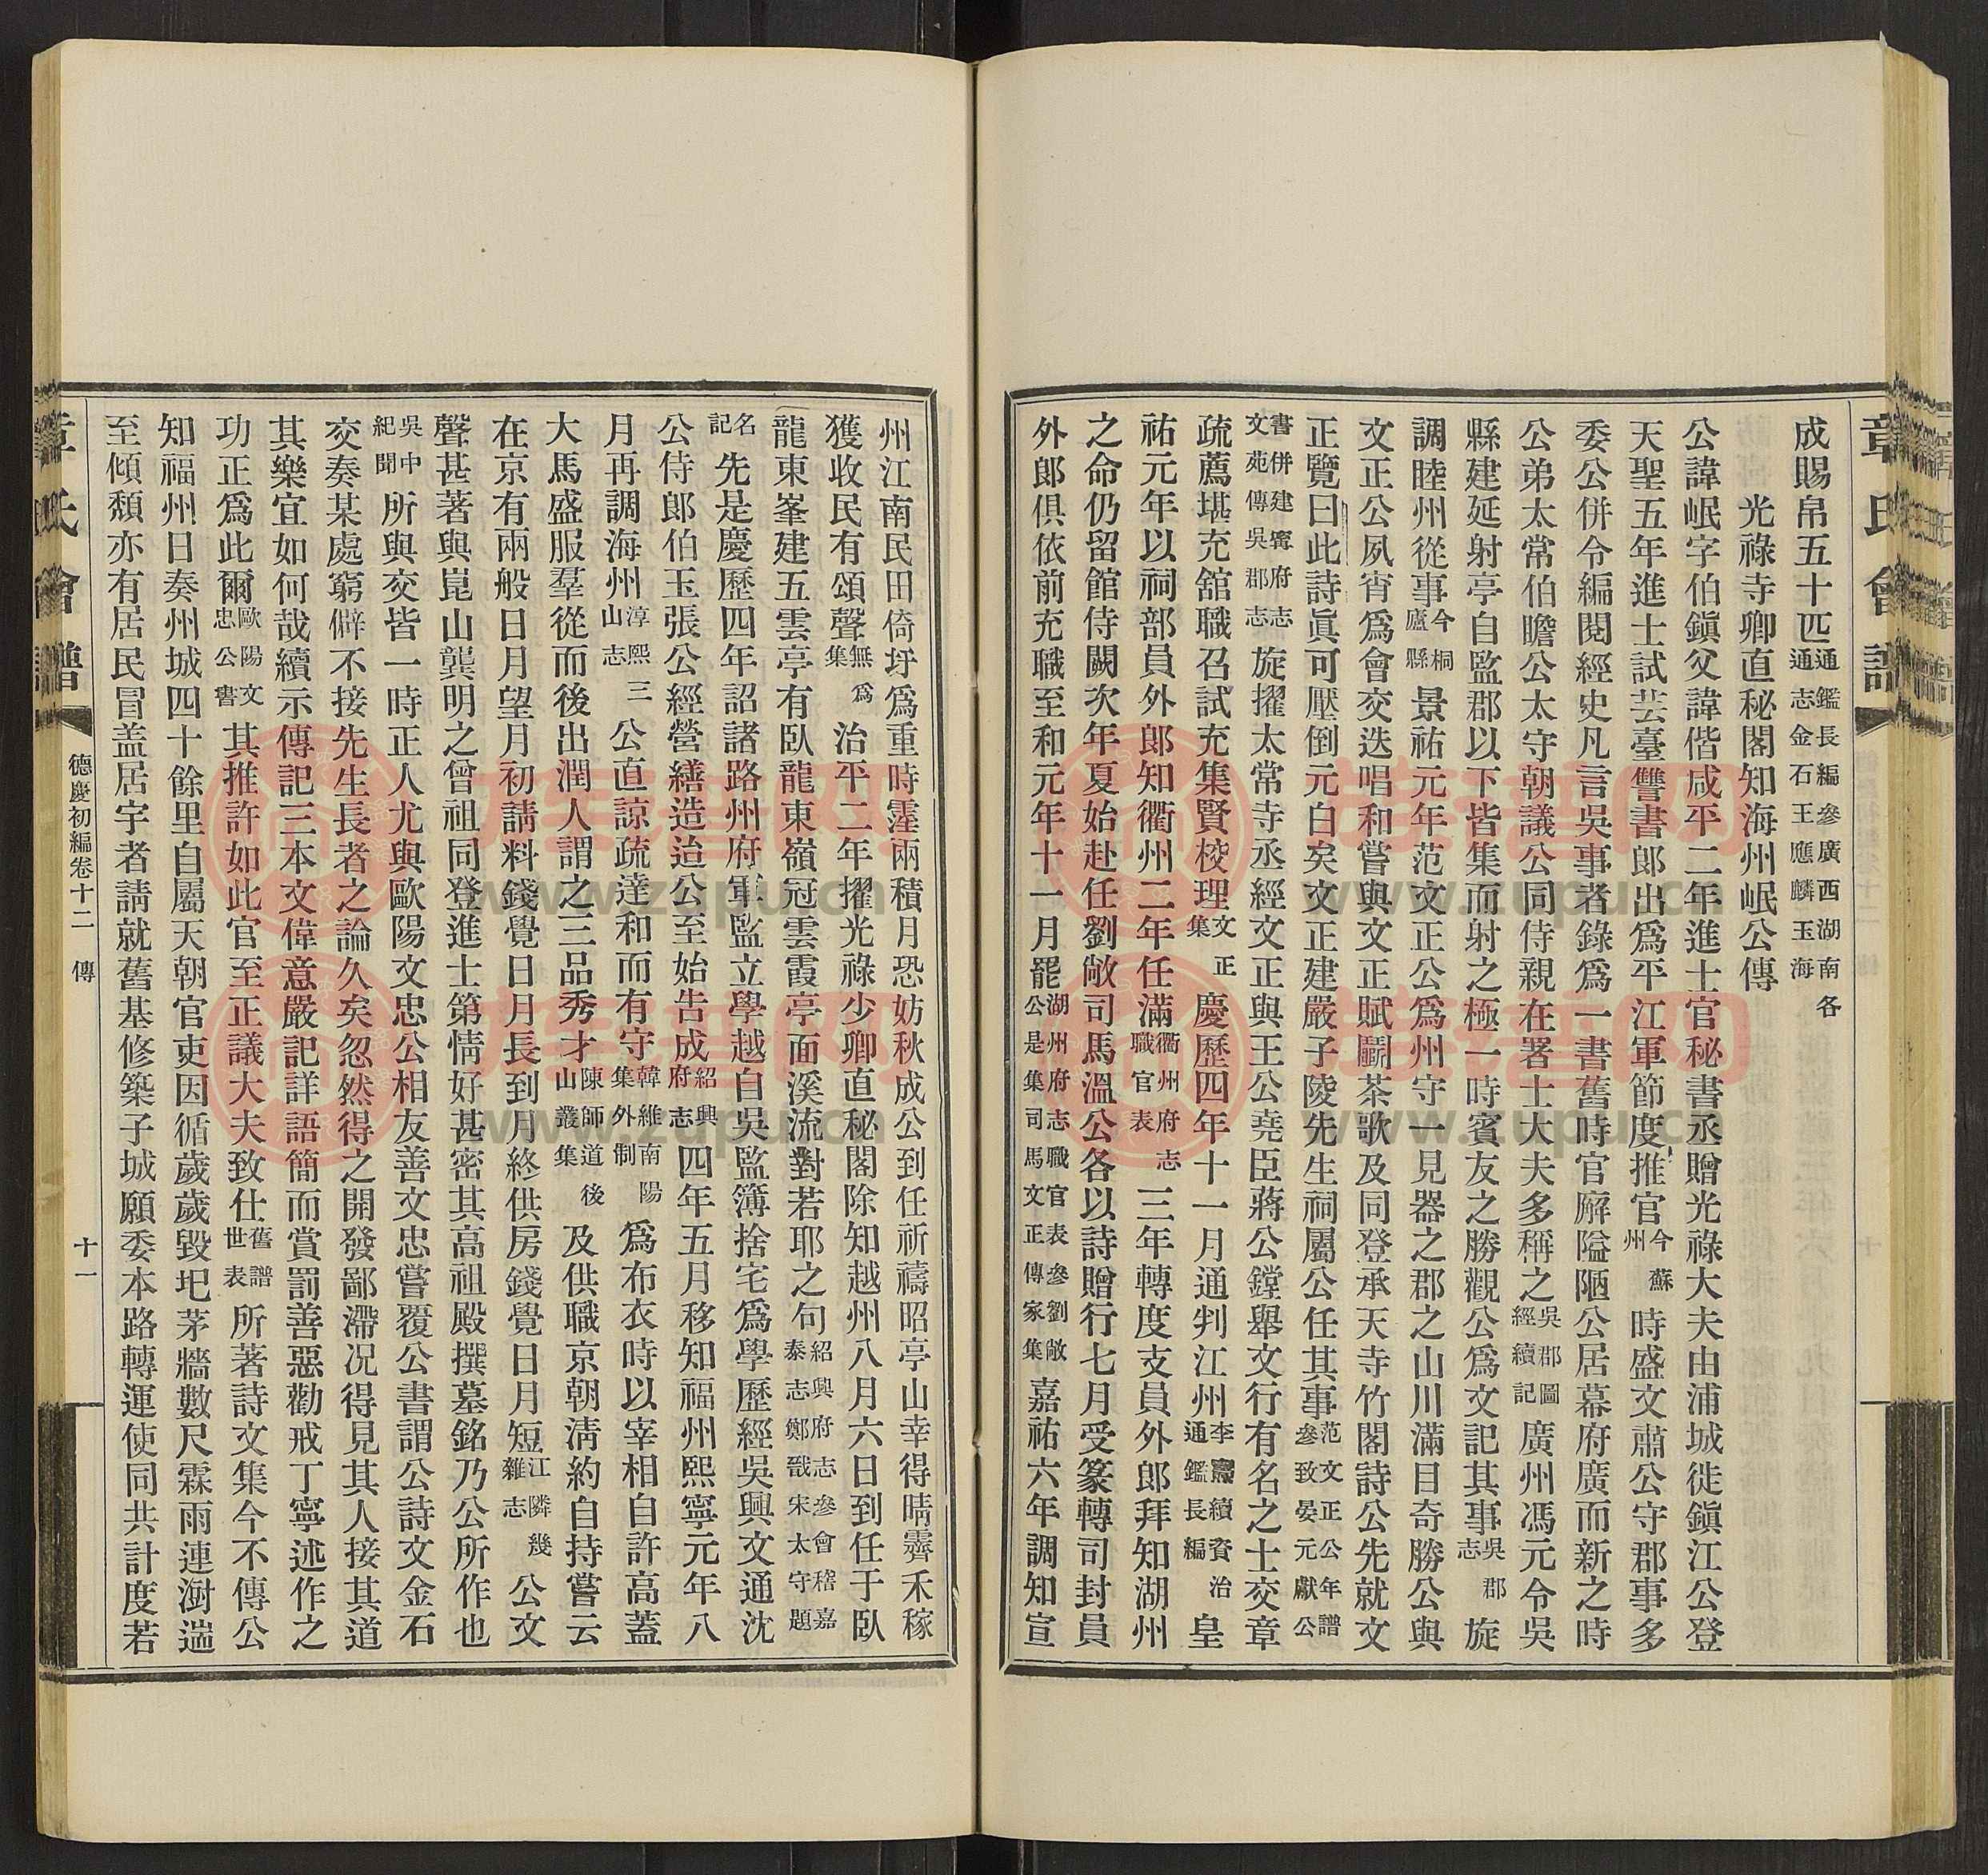 章氏會譜
成賜帛五十匹通鑑長編參廣西湖南各通志金石王應麟玉海
光祿寺卿直秘閣知海州岷公傳
公諱岷字伯鎭父諱偕咸平二年進士官秘書丞贈光祿大夫由浦城徙鎭江公登
天聖五年進士試芸臺讐書郎出爲平江軍節度推官今蘇州時盛文肅公守郡事多
委公併令編閱經史凡言吳事者錄爲一書舊時官廨隘陋公居幕府廣而新之時
公弟太常伯瞻公太守朝議公同侍親在署士大夫多稱之吳郡圖經續記廣州馮元令吳
縣建延射亭自監郡以下皆集而射之極一時賓友之勝觀公爲文記其事吳郡志旋
調睦州從事今桐廬縣景祐元年范文正公爲州守一見器之郡之山川滿目奇勝公與
文正公夙宵爲會交迭唱和嘗與文正賦鬭茶歌及同登承天寺竹閣詩公先就文
正覽曰此詩眞可壓倒元白矣文正建嚴子陵先生祠屬公任其事范文正公年譜參致晏元獻公
書併建寗府志文苑傳吳郡志旋擢太常寺丞經文正與王公堯臣蔣公鏜舉文行有名之士交章
疏薦堪充舘職召試充集賢校理文正集慶歷四年十一月通判江州李燾續資治通鑑長編皇
祐元年以祠部員外郎知衢州二年任滿衢州府志職官表三年轉度支員外郎拜知湖州
之命仍留館侍闕次年夏始赴任劉敞司馬溫公各以詩贈行七月受篆轉司封員
外郎俱依前充職至和元年十一月罷湖州府志職官表參劉敞公是集司馬文正傳家集嘉祐六年調知宣
州江南民田倚圩爲重時霪雨積月恐妨秋成公到任祈禱昭亭山幸得晴霽禾稼
獲收民有頌聲無爲集治平二年擢光祿少卿直秘閣除知越州八月六日到任于臥
龍東峯建五雲亭有臥龍東嶺冠雲霞亭面溪流對若耶之句紹興府志參會稽嘉泰志鄭戩宋太守題
名記先是慶歷四年詔諸路州府軍監立學越自吳監簿捨宅爲學歷經吳興文通沈
公侍郎伯玉張公經營繕造迨公至始告成紹興府志四年五月移知福州熙寧元年八
月再調海州淳熙三山志公直諒疏達和而有守韓維南陽集外制爲布衣時以宰相自許高蓋
大馬盛服羣從而後出潤人謂之三品秀才陳師道後山叢集及供職京朝淸約自持嘗云
在京有兩般日月望月初請料錢覺日月長到月終供房錢覺日月短江隣幾雜志公文
聲甚著與崑山龔明之曾祖同登進士第情好甚密其高祖殿撰墓銘乃公所作也
吳中紀聞所與交皆一時正人尤與歐陽文忠公相友善文忠嘗覆公書謂公詩文金石
交奏某處窮僻不接先生長者之論久矣忽然得之開發鄙滯况得見其人接其道
其樂宜如何哉續示傳記三本文偉意嚴記詳語簡而賞罰善惡勸戒丁寧述作之
功正爲此爾歐陽文忠公書其推許如此官至正議大夫致仕舊譜世表所著詩文集今不傳公
知福州日奏州城四十餘里自屬天朝官吏因循歲歲毀圯茅牆數尺霖雨連澍湍
至傾頽亦有居民冒盖居宇者請就舊基修築子城願委本路轉運使同共計度若
章氏會譜
德慶初編卷十二 傳
十一